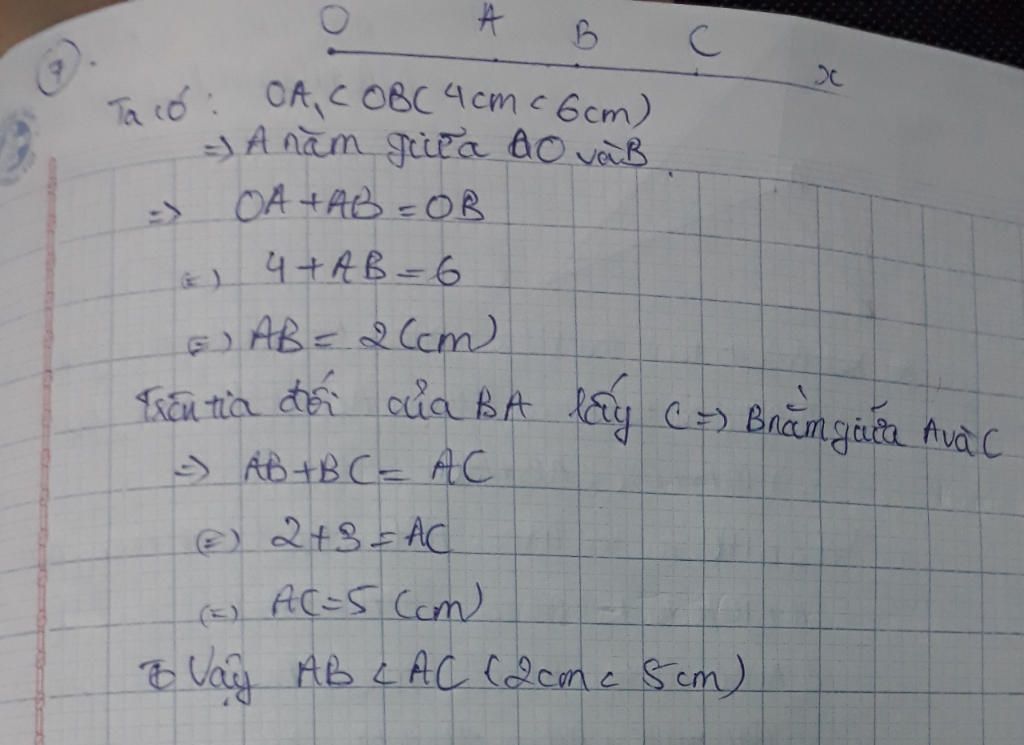 O A B C x
7.
Ta có: OA < OB (4cm < 6cm)
=> A nằm giữa O và B
=> OA + AB = OB
(=) 4 + AB = 6
(=) AB = 2 (cm)
Trên tia đối của BA lấy C => B nằm giữa A và C
=> AB + BC = AC
(=) 2 + 3 = AC
(=) AC = 5 (cm)
Vậy AB < AC (2cm < 5cm)